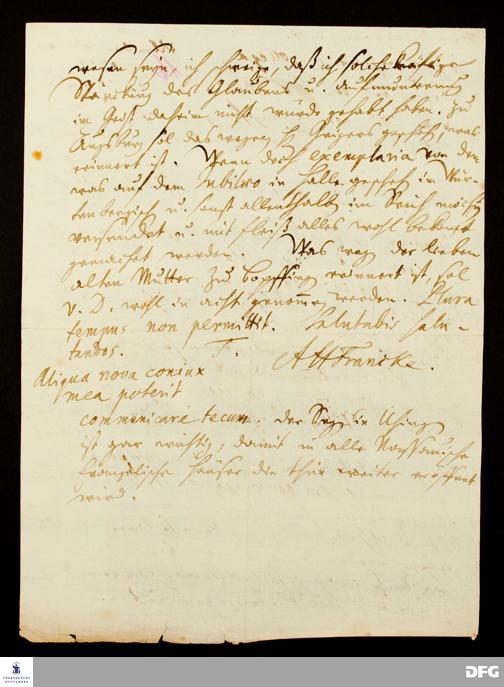 wesen seyn ich schweige, daß ich solche kräftige
Stärckung des Glaubens u. aufmunterung
im Geist daheim nicht würde gehabt haben. Zu
Augspurg sol das wegen H. geschehen, was
erinnert ist. Wenn doch exemplaria von dem
was auf dem Jubilaeo in Halle geschehen in Wür-
tenbergisch u. sonst allenthalb im Reich möchten
versendet u. mit fleiß alles wohl bekant
gemachet werden. Was weg. der lieben
alten Mutter zu Bopffing. erinnert ist, sol
v. D. wohl in acht genommen werden. Plura
tempus non permittit. Salutabis salu-
tandos.
T.
AHFrancke.
Aliqua nova coniux
mea poterit
communicare tecum. Der Segen in Using.
ist gar wichtig, damit in alle Nassauische
Evangelische Häuser die thür weiter eröffnet
wird.
FRANCKESCHE STIFTUNGEN
DFG